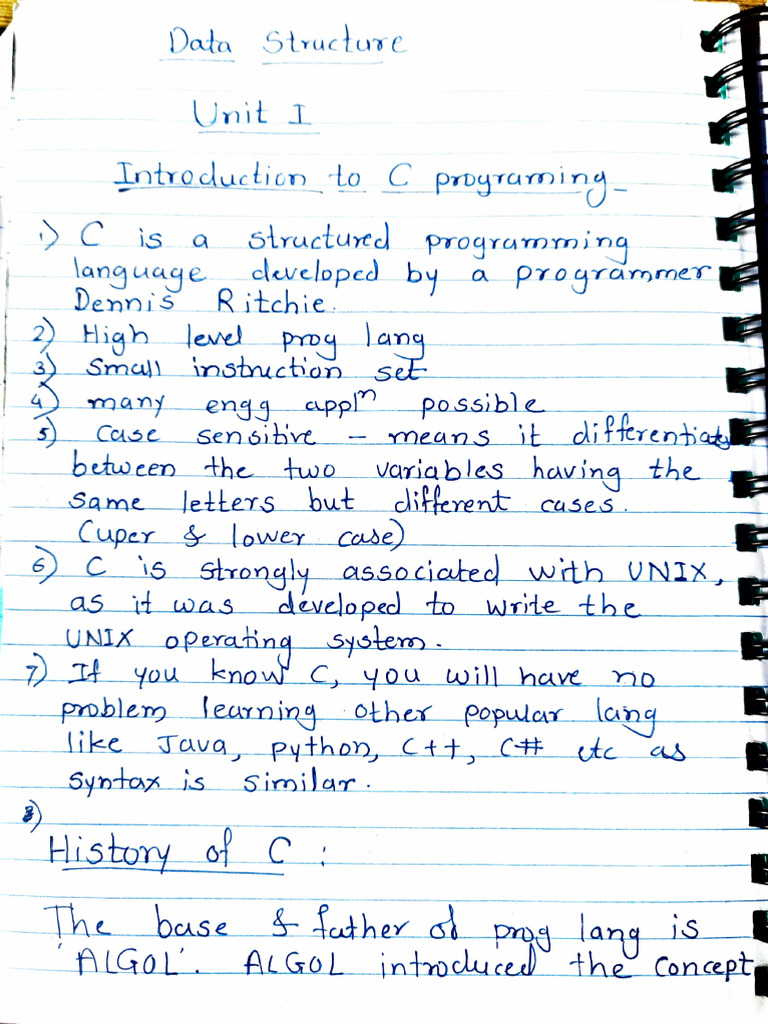 Data Structure
Unit I
Introduction to C programing
1) C is a structured programming
language developed by a programmer
Dennis Ritchie.
2) High level prog lang
3) Small instruction set
4) many engg applⁿ possible
5) Case sensitive – means it differentiates
between the two variables having the
same letters but different cases.
(uper & lower case)
6) C is strongly associated with UNIX,
as it was developed to write the
UNIX operating system.
7) If you know C, you will have no
problem learning other popular lang
like Java, python, C++, C# etc as
syntax is similar.
8)
History of C :
The base & father of prog lang is
'ALGOL'. ALGOL introduced the concept